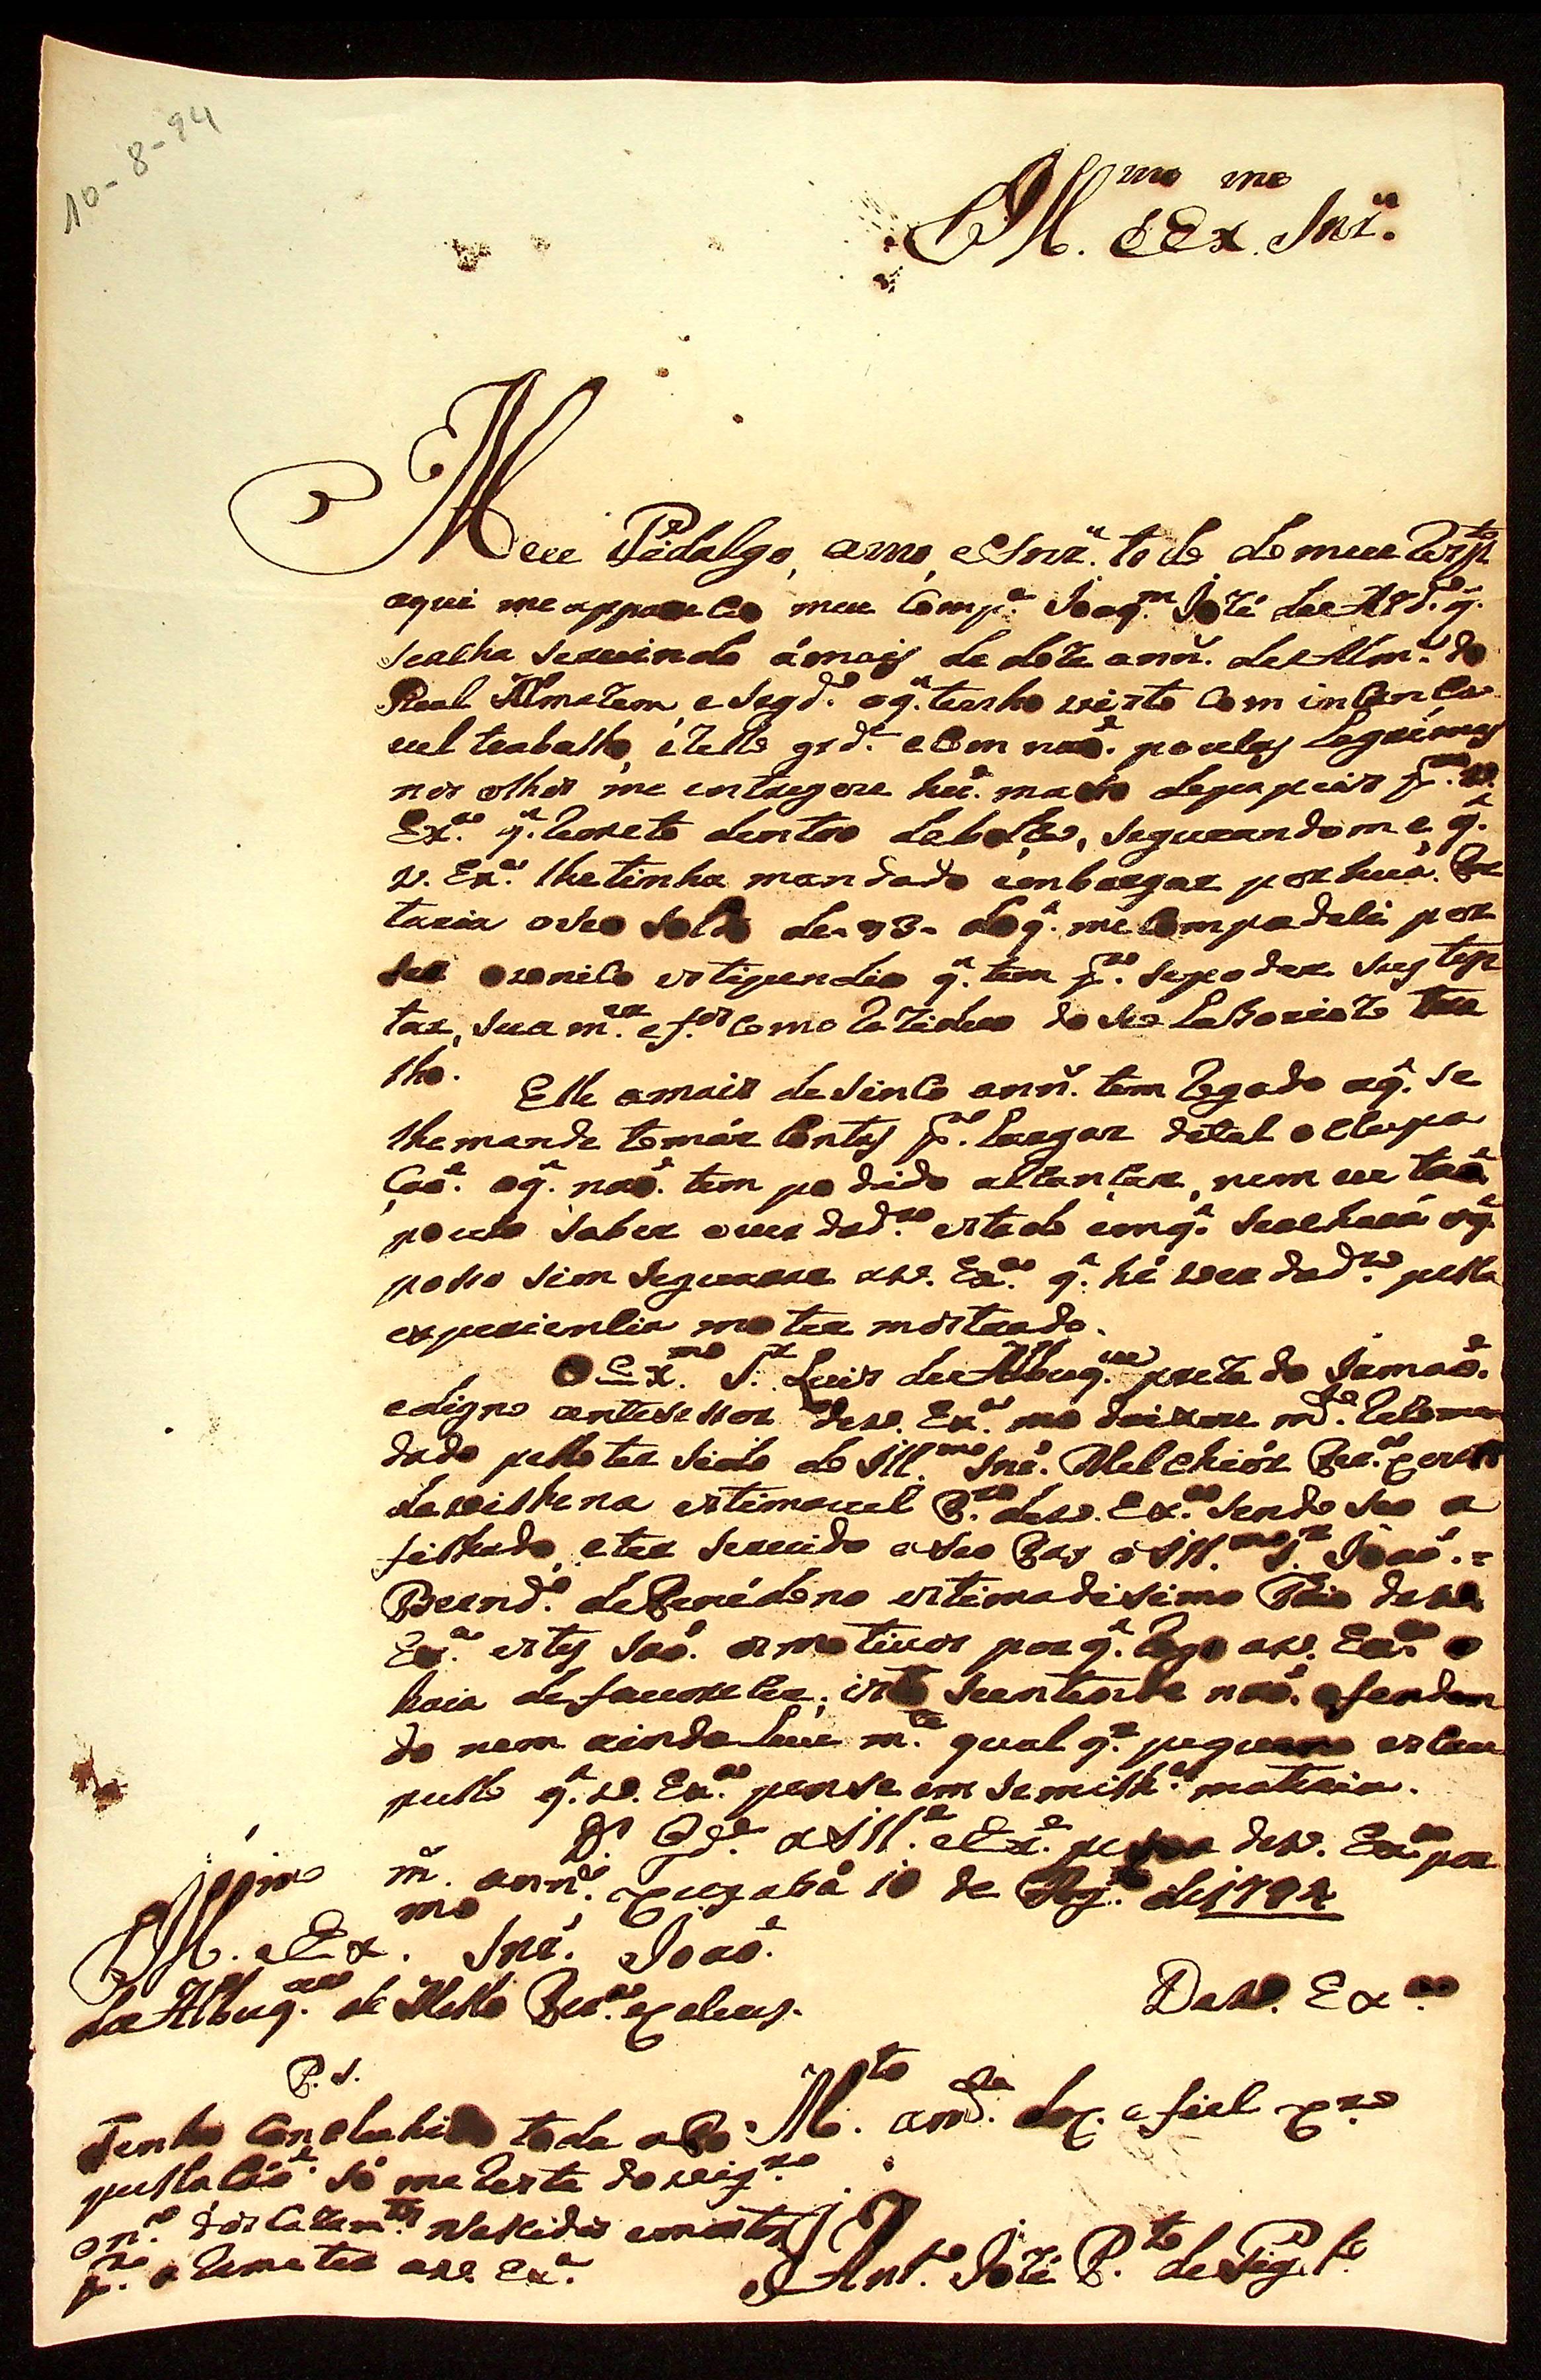 10-8-94
Ill.mo e Ex.mo Snr.
Meu Fidalgo, amo, e Snr. todo do meu Resp.to
aqui me appareceo meu Comp.e Joaq.m Jozé de Azd.o q.
se acha servindo á mais de doze ann. de Alm.e do
Real Almazem, e segd.o o q. tenho visto com incança
vel trabalho, e zello grd.e e com não. poucas Lagrimas
nos olhos me entregou hũ. maso de papeis p.a V.
Ex.a q. Remeto dentro da bolça, segurandome q.
V. Ex.a lhe tinha mandado embargar por huã. Por
taria o seo soldo de 93- do q. me Compadeci por
ser o unico estipendio q. tem p.a se poder susten
tar, sua m.er e f.os como Reziduo do seo Laboriozo tra
lho.
Elle a mais de sinco ann. tem Rogado a q. se
lhe mande tomár Contas p.a Largar de tal occupa
ção. o q. não. tem podido alcançar, nem eu tão
pouco saber o verdad.ro estado em q. se achará o q.
posso sim segurar a V. Ex.a q. hé verdad.ro pella
experiencia mo ter mostrado.
O Ex.mo S.r Luis de Albuq.ue prezado Irmaõ.
e digno antesessor de V. Ex.a mo deixou m.to Recomen
dado pello ter sido do Ill.mo Snr. Melchiór Per.a
estimavel P.mo de V. Ex.a sendo seo a
filhado, e ter servido a seo Pay o Ill.mo S.r João. =
Bernd.o de estimadisimo Tio de V.
Ex.a estes são. os motivos por q. Rogo a V. Ex.a o
haia de favorecer, isto se entende não. ofenden
do nem ainda leve m.te qual q.r pequeno escru
pullo q. V. Ex.a pense em semilh.e materia.
D.s G.de a Ill.e e Ex.e pessoa de V. Ex.a por
m. ann. Cuyabá 10 de Ag.to de 1794
Ill.mo e Ex.mo Snr. João
de Albuq.ue de Mello Per.a e Caceres.
De V. Ex.a
P.S.
Tenho Concluhido toda a Po
pullação. só me Resta do vig.ro
o n.o dos Cazam.tos Nascidos e mortos
p.a o Remeter a V. Ex.a
M.to am.te e fiel
Ant.o Jozé P.to de Fig.do